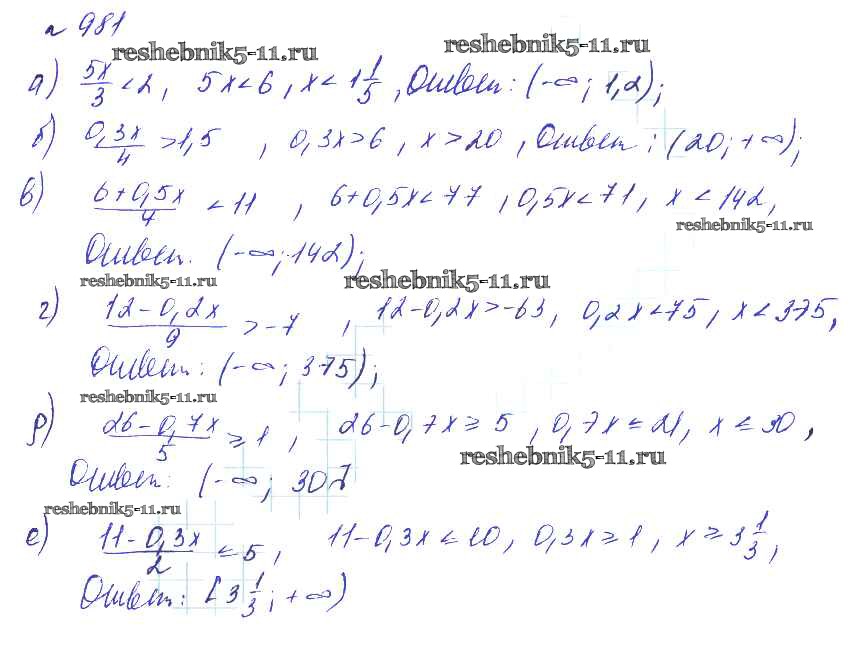 № 981
reshebnik5-11.ru reshebnik5-11.ru
а) 5x/3 < 2, 5x < 6, x < 1 1/5, Ответ: (-∞; 1,2);
б) 0,3x/4 > 1,5, 0,3x > 6, x > 20, Ответ: (20; +∞);
в) 6+0,5x/7 < 11, 6+0,5x < 77, 0,5x < 71, x < 142,
reshebnik5-11.ru
Ответ. (-∞; 142);
reshebnik5-11.ru reshebnik5-11.ru
г) 12-0,2x/9 > -7, 12-0,2x > -63, 0,2x < 75, x < 375,
Ответ: (-∞; 375);
reshebnik5-11.ru
д) 26-0,7x/5 ≥ 1, 26-0,7x ≥ 5, 0,7x ≤ 21, x ≤ 30,
reshebnik5-11.ru
Ответ: (-∞; 30]
reshebnik5-11.ru
е) 11-0,3x/2 ≤ 5, 11-0,3x ≤ 10, 0,3x ≥ 1, x ≥ 3 1/3,
Ответ: [3 1/3; +∞)